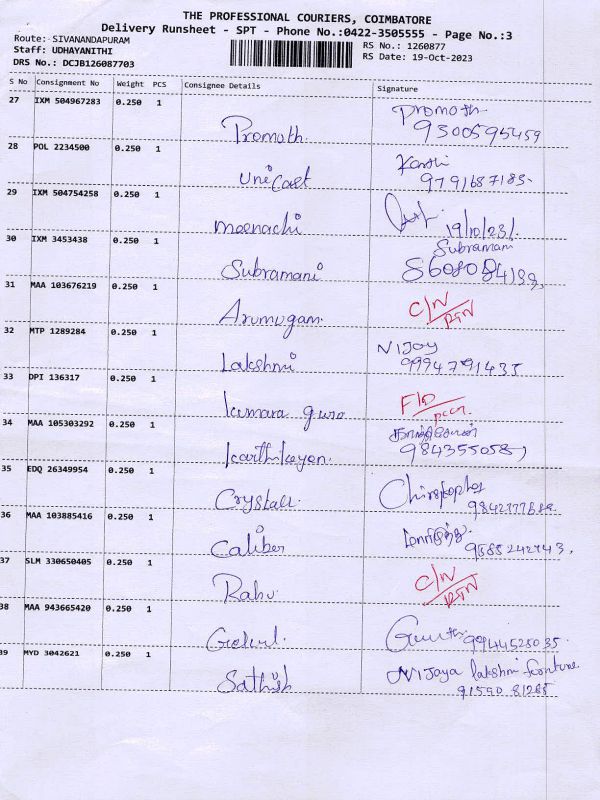 THE PROFESSIONAL COURIERS, COIMBATORE
Delivery Runsheet - SPT - Phone No.:0422-3505555 - Page No.:3
Route: SIVANANDAPURAM
RS No.: 1260877
Staff: UDHAYANITHI
RS Date: 19-Oct-2023
DRS No.: DCJB126087703
S No Consignment No Weight PCS Consignee Details Signature
27 IXM 504967283 0.250 1
Promoth
Promoth 9300595459
28 POL 2234500 0.250 1
Unicast
9791687183
29 IXM 504754258 0.250 1
meenachi
19/10/23
30 IXM 3453438 0.250 1
Subramani
Subramani
31 MAA 103676219 0.250 1
Arumugam
C/N
RTN
32 MTP 1289284 0.250 1
Lakshmi
Vijoy
9994791435
33 DPI 136317 0.250 1
kumara guru
F/D
34 MAA 105303292 0.250 1
karthikeyan
35 EDQ 26349954 0.250 1
Crystall
36 MAA 103885416 0.250 1
Caliber
37 SLM 330650405 0.250 1
Rahu
C/N
RTN
38 MAA 943665420 0.250 1
Gokul
9944525035
39 MYD 3042621 0.250 1
Sathish
Vijaya lakshmi
91590 81285